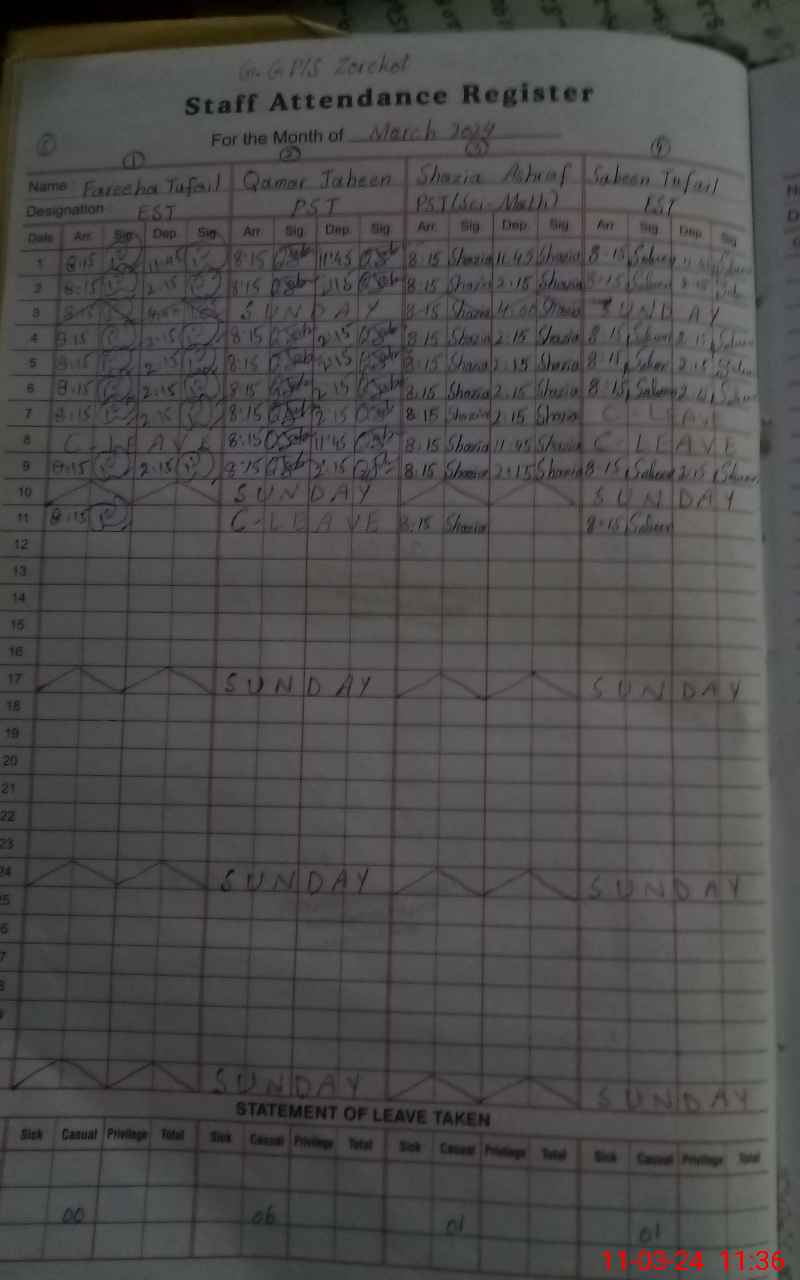 G.G P/S Zorekot
Staff Attendance Register
For the Month of March 2024
① ② ③ ④
Name: Fareeha Tufail Qamar Jabeen Shazia Ashraf Sabeen Tufail
Designation EST PST PST(Sci-Math) EST
Date Arr. Sig. Dep. Sig. Arr. Sig. Dep. Sig. Arr. Sig. Dep. Sig. Arr. Sig. Dep. Sig
1 8:15 11:45 8:15 11:45 8:15 Shazia 11:45 Shazia 8:15 Sabeen
2 8:15 2:15 8:15 8:15 Shazia 2:15 Shazia 8:15 Sabeen
3 SUNDAY 8:15 Shazia Shazia SUNDAY
4 8:15 2:15 8:15 2:15 8:15 Shazia 2:15 Shazia 8:15 Sabeen 2:15
5 8:15 2:15 8:15 2:15 8:15 Shazia 2:15 Shazia 8:15 Sabeen 2:15
6 8:15 2:15 8:15 2:15 8:15 Shazia 2:15 Shazia 8:15 Sabeen 2:15
7 8:15 2:15 8:15 2:15 8:15 Shazia 2:15 Shazia C-LEAVE
8 C-LEAVE 8:15 11:45 8:15 Shazia 11:45 Shazia C-LEAVE
9 8:15 2:15 8:15 2:15 8:15 Shazia 2:15 Shazia 8:15 Sabeen 2:15
10 SUNDAY SUNDAY
11 8:15 C-LEAVE 8:15 Shazia 8:15 Sabeen
12
13
14
15
16
17 SUNDAY SUNDAY
18
19
20
21
22
23
24 SUNDAY SUNDAY
SUNDAY SUNDAY
STATEMENT OF LEAVE TAKEN
Sick Casual Privilege Total Sick Casual Privilege Total Sick Casual Privilege Total Sick Casual Privilege Total
00 06 01 01
11-03-24 11:36